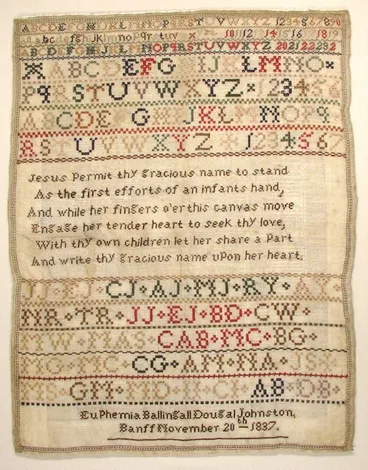 A B C D E F G H I J K L M N O P Q R S T U V W X Y Z 1234567890
abc fghijklmnopqr stuv x 10 11 12 14 15 16 18 19
A B C D E F G H I J K L M N O P Q R S T U V W X Y Z 20 21 22 23 2
A B C D E F G I J L M N O
P Q R S T U V W X Y Z 1 2 3 4 5 6
A B C D E G J K L M N O P Q
R S T U V W X Y Z 1 2 3 4 5 6 7
Jesus Permit thy gracious name to stand
As the first efforts of an infants hand,
And while her fingers o'er this canvas move
Engage her tender heart to seek thy love,
With thy own children let her share a Part
And write thy gracious name upon her heart.
CJ AJ MJ RY AY
NR TR JJ EJ BD CW
MW MAS CAB MC BG
MC CG AM MA JS
GM CH AB DB
Euphemia Ballingall Dougal Johnston,
Banff November 20th 1837.